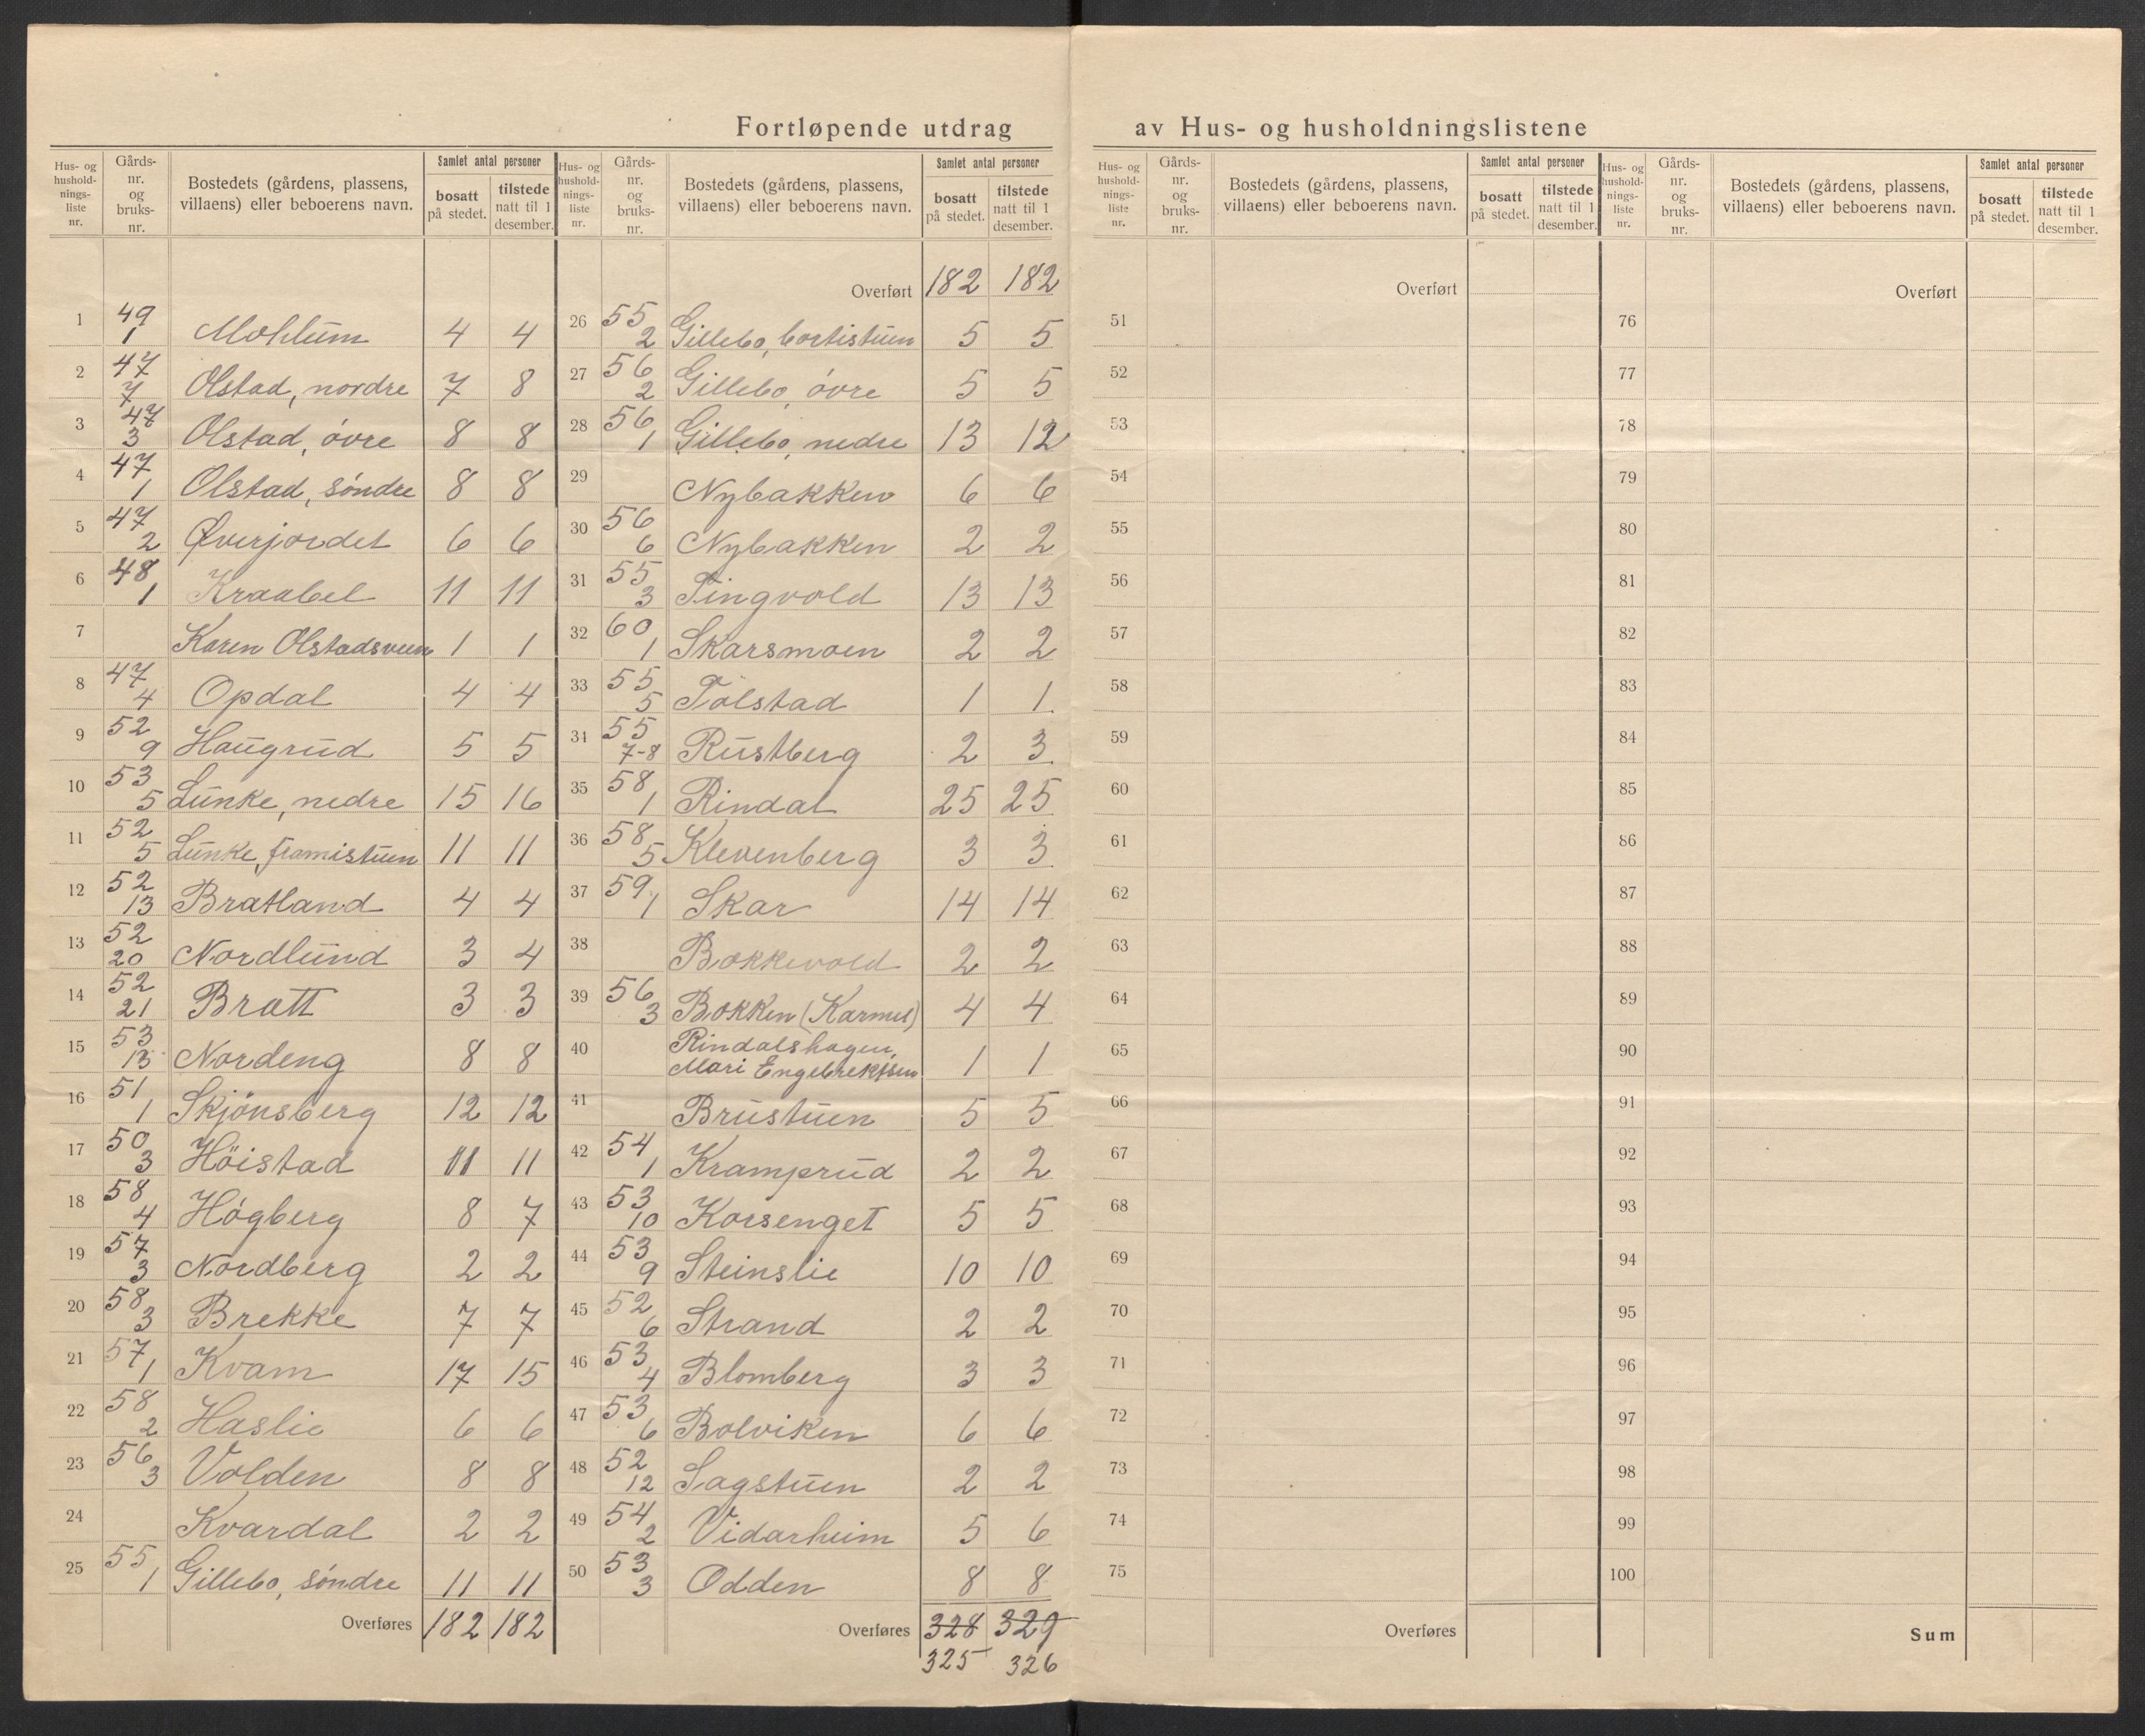 Fortløpende utdrag av Hus- og husholdningslistene
Hus- og hushold- nings- liste nr. | Gårds- nr. og bruks- nr. | Bostedets (gårdens, plassens, villaens) eller beboerens navn. | Samlet antal personer | bosatt på stedet. | tilstede natt til 1 desember.
1 49 1 Mohlum 4 4
2 47 7 Olstad, nordre 7 8
3 47 3 Olstad, övre 8 8
4 47 1 Olstad, söndre 8 8
5 47 2 Øverjordet 6 6
6 48 1 Kraabel 11 11
7 Karen Olstadsveen 1 1
8 47 4 Opdal 4 4
9 52 9 Haugrud 5 5
10 53 5 Lunke, nedre 15 16
11 52 5 Lunke, framistuen 11 11
12 52 13 Bratland 4 4
13 52 20 Nordlund 3 4
14 52 21 Bratt 3 3
15 53 13 Nordeng 8 8
16 51 1 Skjönsberg 12 12
17 50 3 Höistad 11 11
18 58 4 Högberg 8 7
19 57 3 Nordberg 2 2
20 58 3 Brekke 7 7
21 57 1 Kvam 17 15
22 58 2 Haslie 6 6
23 56 3 Volden 8 8
24 Kvardal 2 2
25 55 1 Gillebo, söndre 11 11
Overføres 182 182
Hus- og hushold- nings- liste nr. | Gårds- nr. og bruks- nr. | Bostedets (gårdens, plassens, villaens) eller beboerens navn. | Samlet antal personer | bosatt på stedet. | tilstede natt til 1 desember.
Overført 182 182
26 55 2 Gillebo, bortistuen 5 5
27 56 2 Gillebo, övre 5 5
28 56 1 Gillebo, nedre 13 12
29 Nybakken 6 6
30 56 6 Nybakken 2 2
31 55 3 Tingvold 13 13
32 60 1 Skarsmoen 2 2
33 55 5 Tolstad 1 1
34 55 7-8 Rustberg 2 3
35 58 1 Rindal 25 25
36 58 5 Klevenberg 3 3
37 59 1 Skar 14 14
38 Bakkevold 2 2
39 56 3 Bakken (Karmel) 4 4
40 Rindalshagen,
Mari Engebrektsen 1 1
41 Brustuen 5 5
42 54 1 Kramprud 2 2
43 53 10 Korsenget 5 5
44 53 9 Steinslie 10 10
45 52 6 Strand 2 2
46 53 4 Blomberg 3 3
47 53 6 Bolviken 6 6
48 52 12 Sagstuen 2 2
49 54 2 Vidarheim 5 6
50 53 3 Odden 8 8
Overføres 328 329
325 326
Hus- og hushold- nings- liste nr. | Gårds- nr. og bruks- nr. | Bostedets (gårdens, plassens, villaens) eller beboerens navn. | Samlet antal personer | bosatt på stedet. | tilstede natt til 1 desember.
Overført
51
52
53
54
55
56
57
58
59
60
61
62
63
64
65
66
67
68
69
70
71
72
73
74
75
Overføres
Hus- og hushold- nings- liste nr. | Gårds- nr. og bruks- nr. | Bostedets (gårdens, plassens, villaens) eller beboerens navn. | Samlet antal personer | bosatt på stedet. | tilstede natt til 1 desember.
Overført
76
77
78
79
80
81
82
83
84
85
86
87
88
89
90
91
92
93
94
95
96
97
98
99
100
Sum